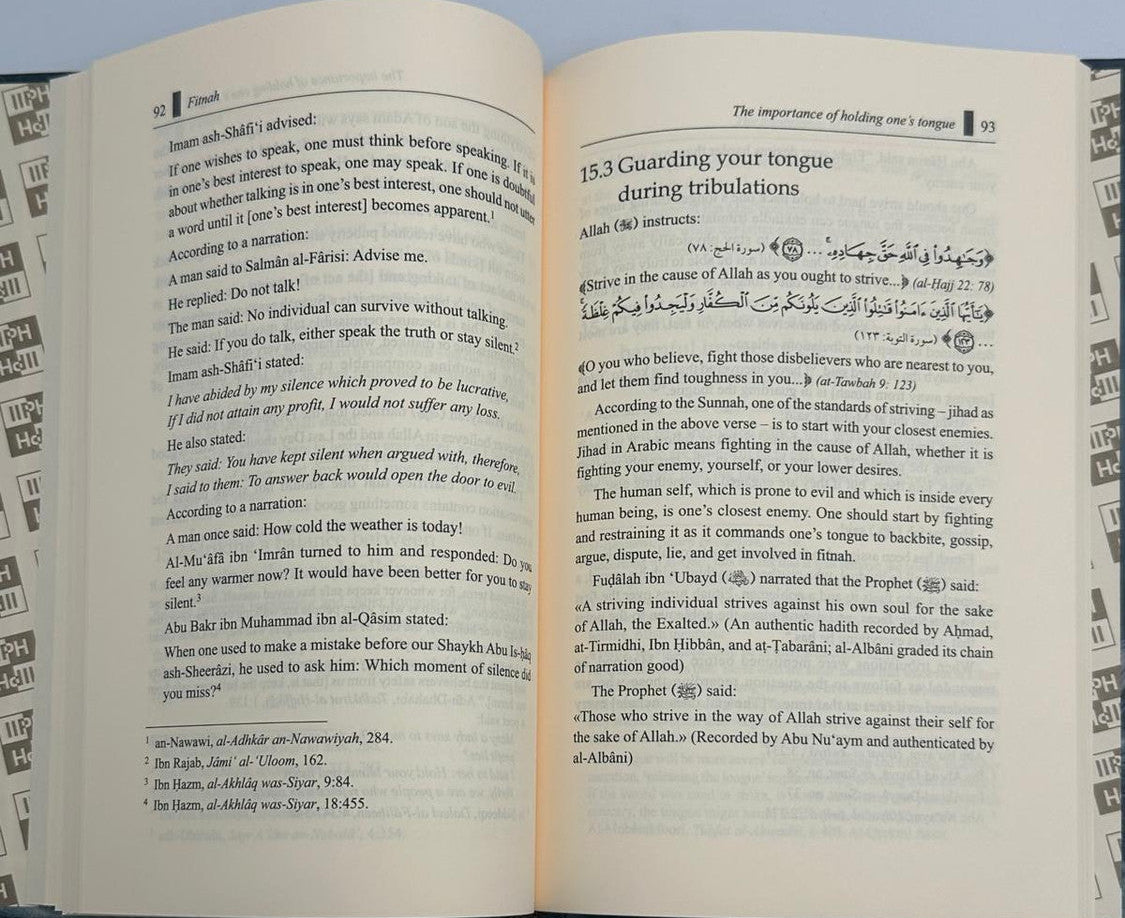 92 Fitnah
Imam ash-Shâfi‘i advised:
If one wishes to speak, one must think before speaking. If it is
in one’s best interest to speak, one may speak. If one is doubtful
about whether talking is in one’s best interest, one should not utter
a word until it [one’s best interest] becomes apparent.1
According to a narration:
A man said to Salmân al-Fârisi: Advise me.
He replied: Do not talk!
The man said: No individual can survive without talking.
He said: If you do talk, either speak the truth or stay silent.2
Imam ash-Shâfi‘i stated:
I have abided by my silence which proved to be lucrative,
If I did not attain any profit, I would not suffer any loss.
He also stated:
They said: You have kept silent when argued with, therefore,
I said to them: To answer back would open the door to evil.
According to a narration:
A man once said: How cold the weather is today!
Al-Mu‘âfâ ibn ‘Imrân turned to him and responded: Do you
feel any warmer now? It would have been better for you to stay
silent.3
Abu Bakr ibn Muhammad ibn al-Qâsim stated:
When one used to make a mistake before our Shaykh Abu Is-hâq
ash-Sheerâzi, he used to ask him: Which moment of silence did
you miss?4
1 an-Nawawi, al-Adhkâr an-Nawawiyah, 284.
2 Ibn Rajab, Jâmi‘ al-‘Uloom, 162.
3 Ibn Ḥazm, al-Akhlâq was-Siyar, 9:84.
4 Ibn Ḥazm, al-Akhlâq was-Siyar, 18:455.
The importance of holding one’s tongue 93
15.3 Guarding your tongue
during tribulations
Allah (ﷻ) instructs:
﴿وَجَـٰهِدُوا۟ فِى ٱللَّهِ حَقَّ جِهَادِهِۦ ۚ ... ۝٧٨﴾ (سورة الحج: ٧٨)
﴾Strive in the cause of Allah as you ought to strive...﴿ (al-Ḥajj 22: 78)
﴿يَـٰٓأَيُّهَا ٱلَّذِينَ ءَامَنُوا۟ قَـٰتِلُوا۟ ٱلَّذِينَ يَلُونَكُم مِّنَ ٱلْكُفَّارِ وَلْيَجِدُوا۟ فِيكُمْ غِلْظَةً ۚ
... ۝١٢٣﴾ (سورة التوبة: ١٢٣)
﴾O you who believe, fight those disbelievers who are nearest to you,
and let them find toughness in you...﴿ (at-Tawbah 9: 123)
According to the Sunnah, one of the standards of striving – jihad as
mentioned in the above verse – is to start with your closest enemies.
Jihad in Arabic means fighting in the cause of Allah, whether it is
fighting your enemy, yourself, or your lower desires.
The human self, which is prone to evil and which is inside every
human being, is one’s closest enemy. One should start by fighting
and restraining it as it commands one’s tongue to backbite, gossip,
argue, dispute, lie, and get involved in fitnah.
Fuḍâlah ibn ‘Ubayd (رضي الله عنه) narrated that the Prophet (ﷺ) said:
«A striving individual strives against his own soul for the sake
of Allah, the Exalted.» (An authentic hadith recorded by Aḥmad,
at-Tirmidhi, Ibn Ḥibbân, and aṭ-Ṭabarâni; al-Albâni graded its chain
of narration good)
The Prophet (ﷺ) said:
«Those who strive in the way of Allah strive against their self for
the sake of Allah.» (Recorded by Abu Nu‘aym and authenticated by
al-Albâni)